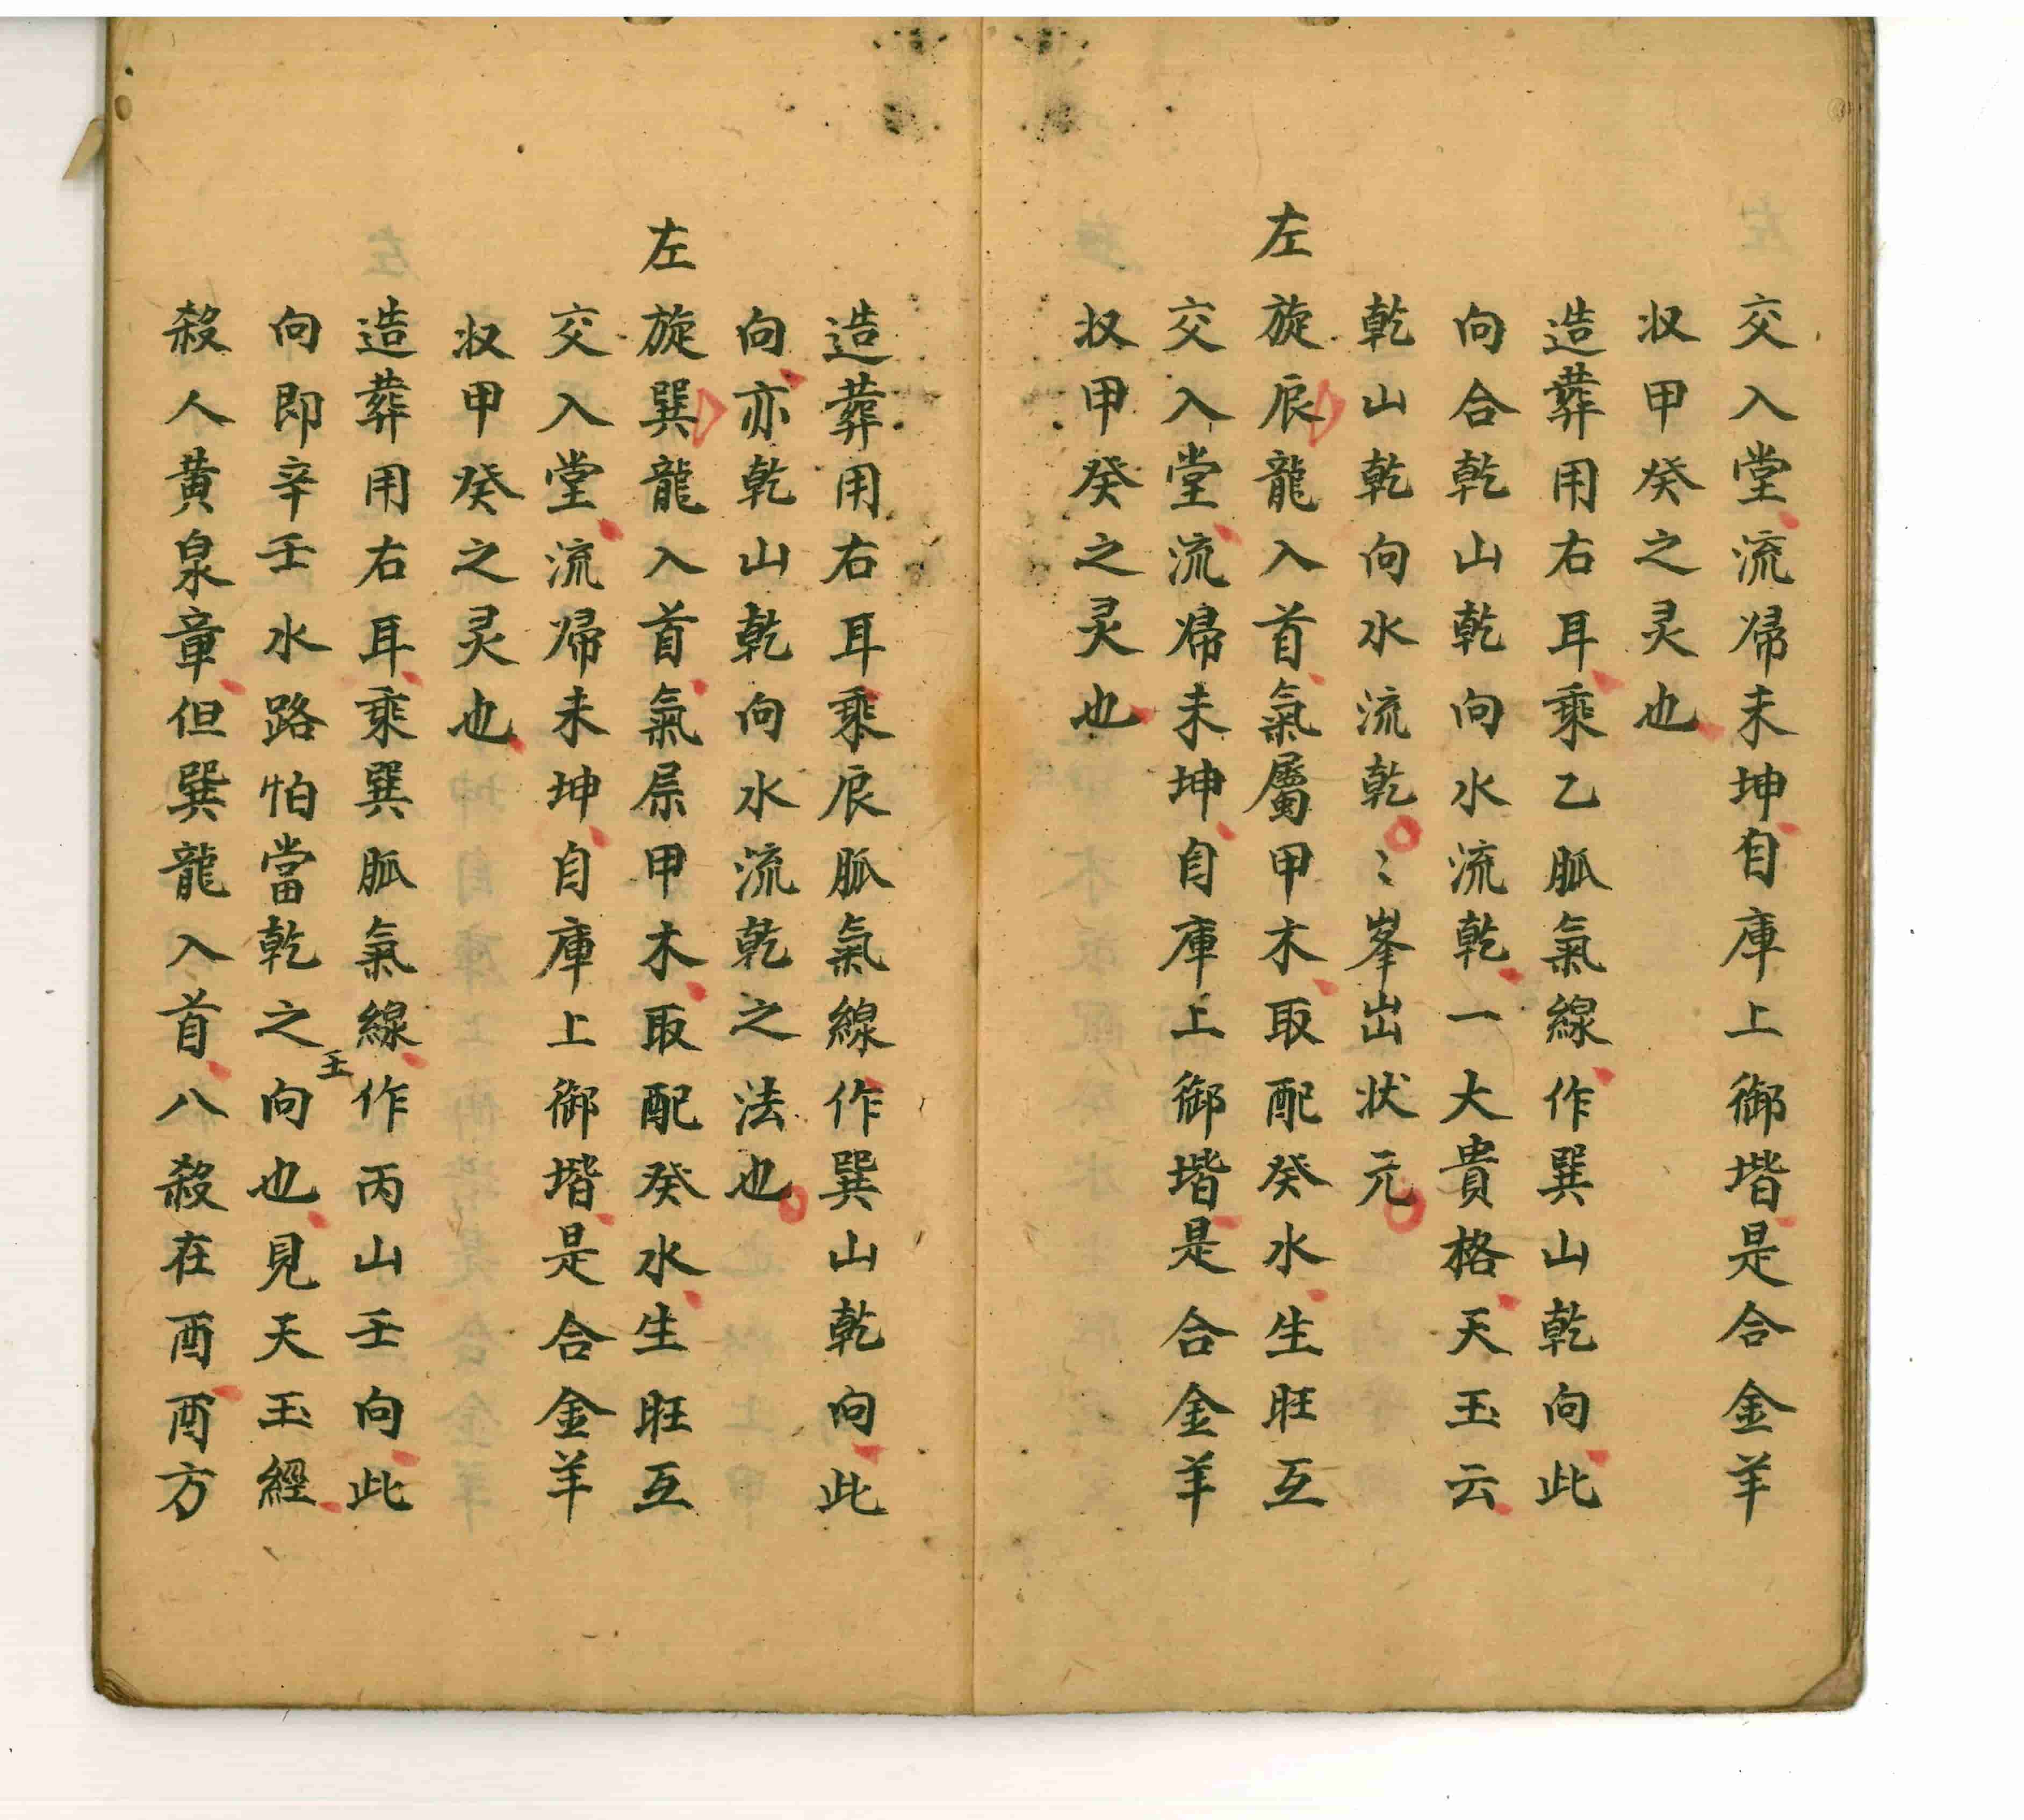 交入堂流帰未坤自庫上御堦是合金羊
収甲癸之灵也
造葬用右耳乘乙脈氣線作巽山乾向此
向合乾山乾向水流乾一大貴格天玉云
乾山乾向水流乾〻峯出状元
左旋辰龍入首氣屬甲木取配癸水生旺互
交入堂流帰未坤自庫上御堦是合金羊
収甲癸之灵也
造葬用右耳乘辰脈氣線作巽山乾向此
向亦乾山乾向水流乾之法也
左旋巽龍入首氣屬甲木取配癸水生旺互
交入堂流帰未坤自庫上御堦是合金羊
収甲癸之灵也
造葬用右耳乘巽脈氣線作丙山壬向此
向即辛壬水路怕當乾之壬向也見天玉經
殺人黃泉章但巽龍入首八殺在酉酉方